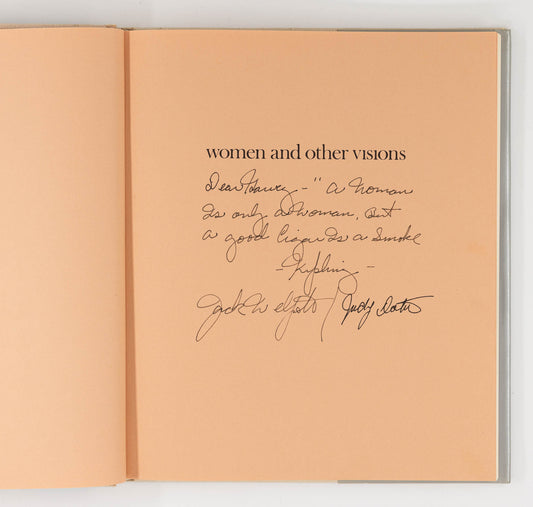 women and other visions
Dear Harvey - " A Woman
Is only a woman, But
a good Cigar Is a Smoke
- Kipling -
Jack Welpott / Judy Dater